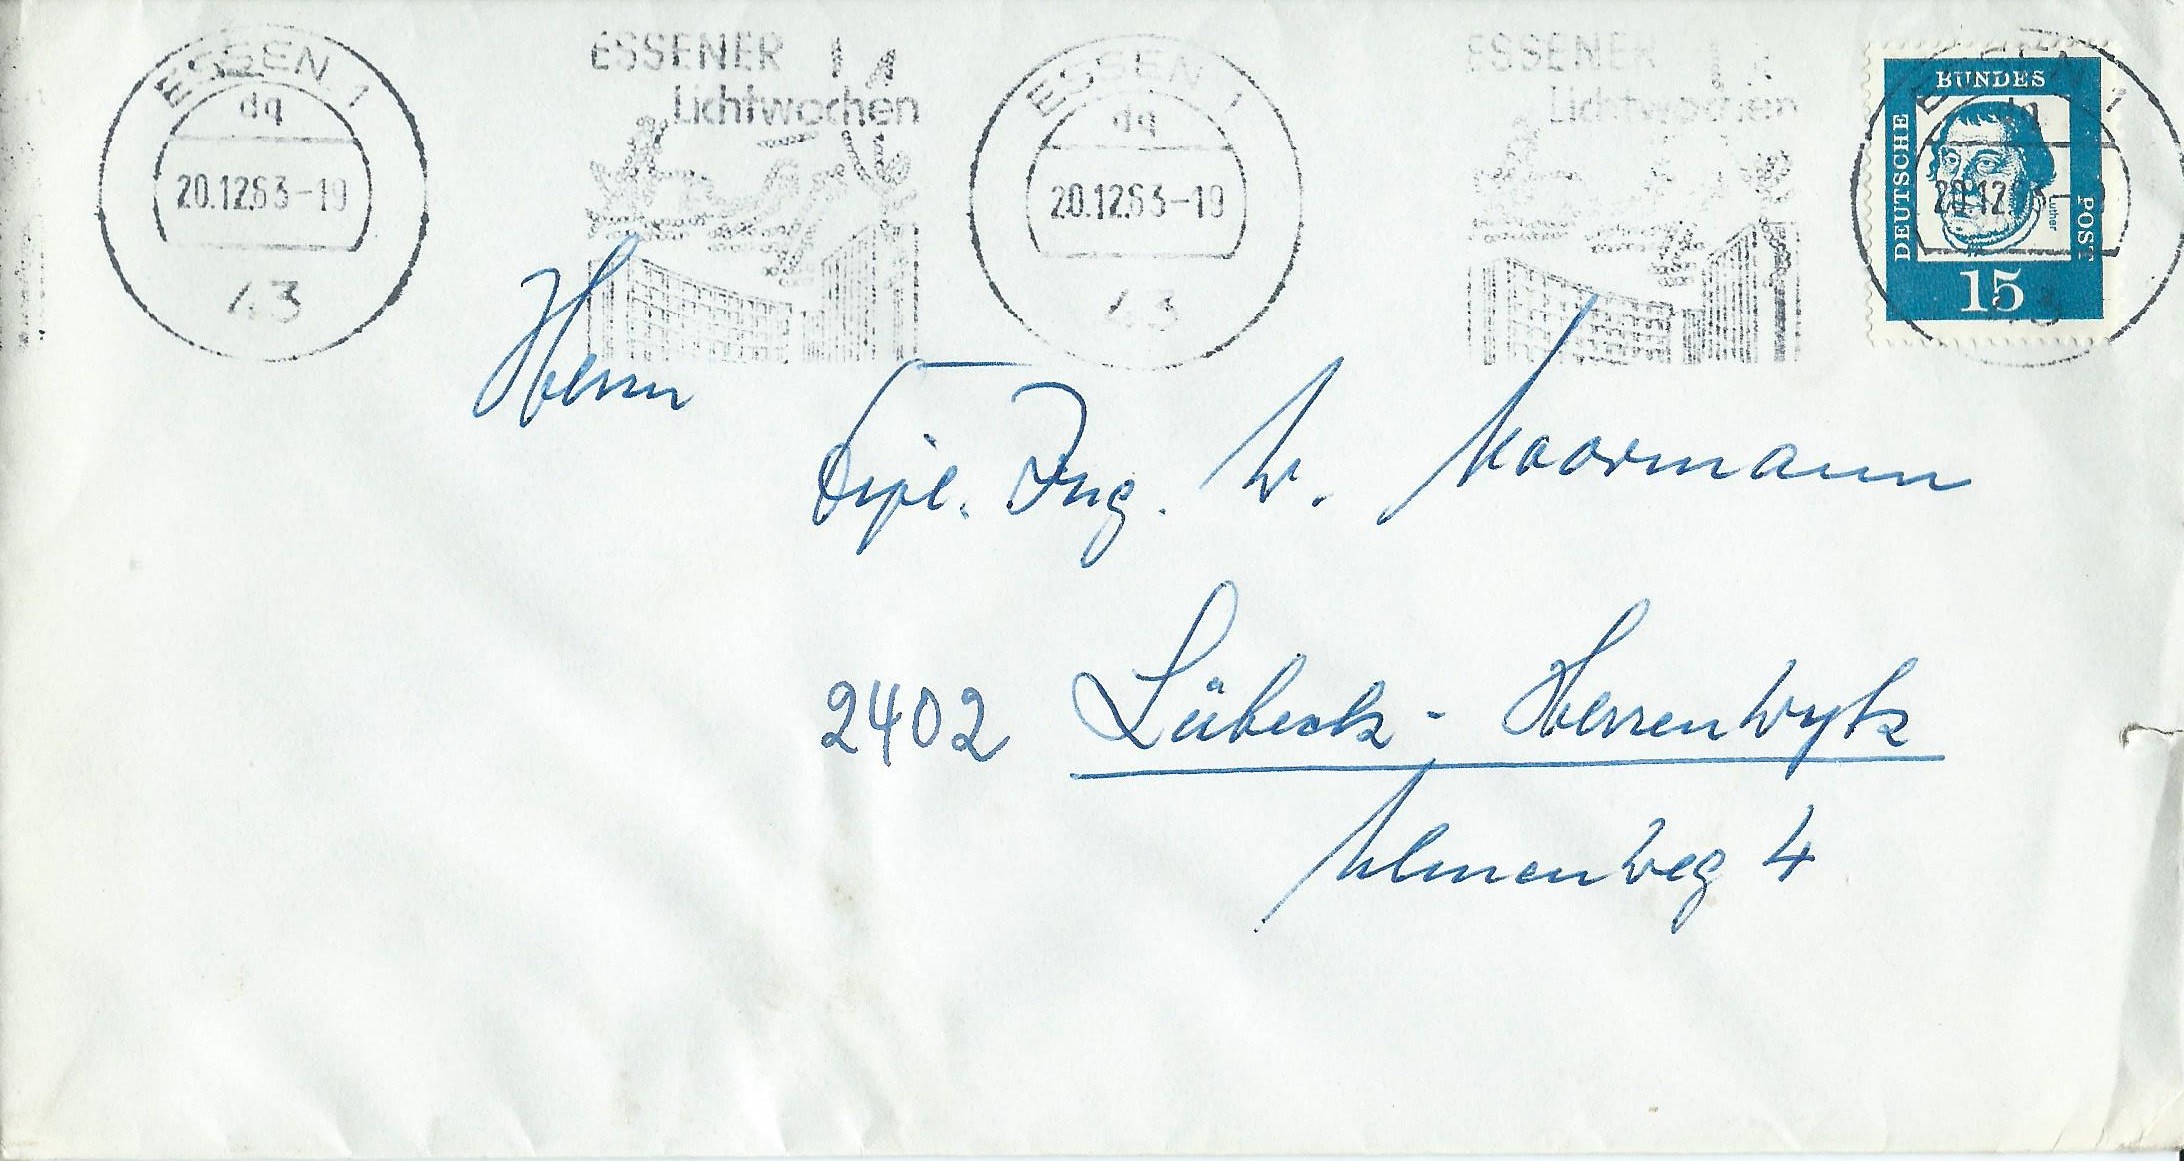 ESSEN 1
dq
20.12.63-19
43
ESSENER
Lichtwochen
ESSEN 1
dq
20.12.63-19
43
ESSENER
Lichtwochen
ESSEN 1
dq
20.12.63-19
43
DEUTSCHE BUNDES POST
Luther
15
Herrn
Dipl. Ing. W. Moormann
2402 Lübeck-Herrenwyk
Ulmenweg 4